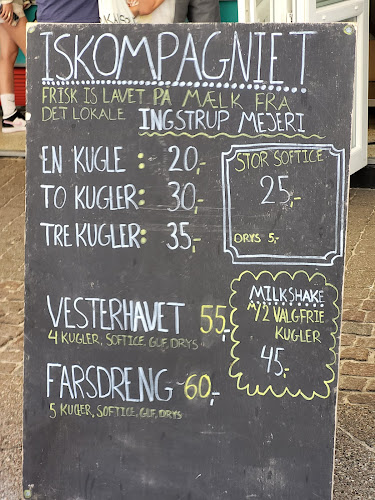 ISKOMPAGNIET
FRISK IS LAVET PÅ MÆLK FRA
DET LOKALE INGSTRUP MEJERI
EN KUGLE : 20,-
TO KUGLER: 30,-
TRE KUGLER: 35,-
STOR SOFTICE
25,-
DRYS 5,-
VESTERHAVET 55,-
4 KUGLER, SOFTICE, GUF, DRYS
FARSDRENG - 60,-
5 KUGLER, SOFTICE, GUF, DRYS
MILKSHAKE
M/2 VALGFRIE
KUGLER
45,-